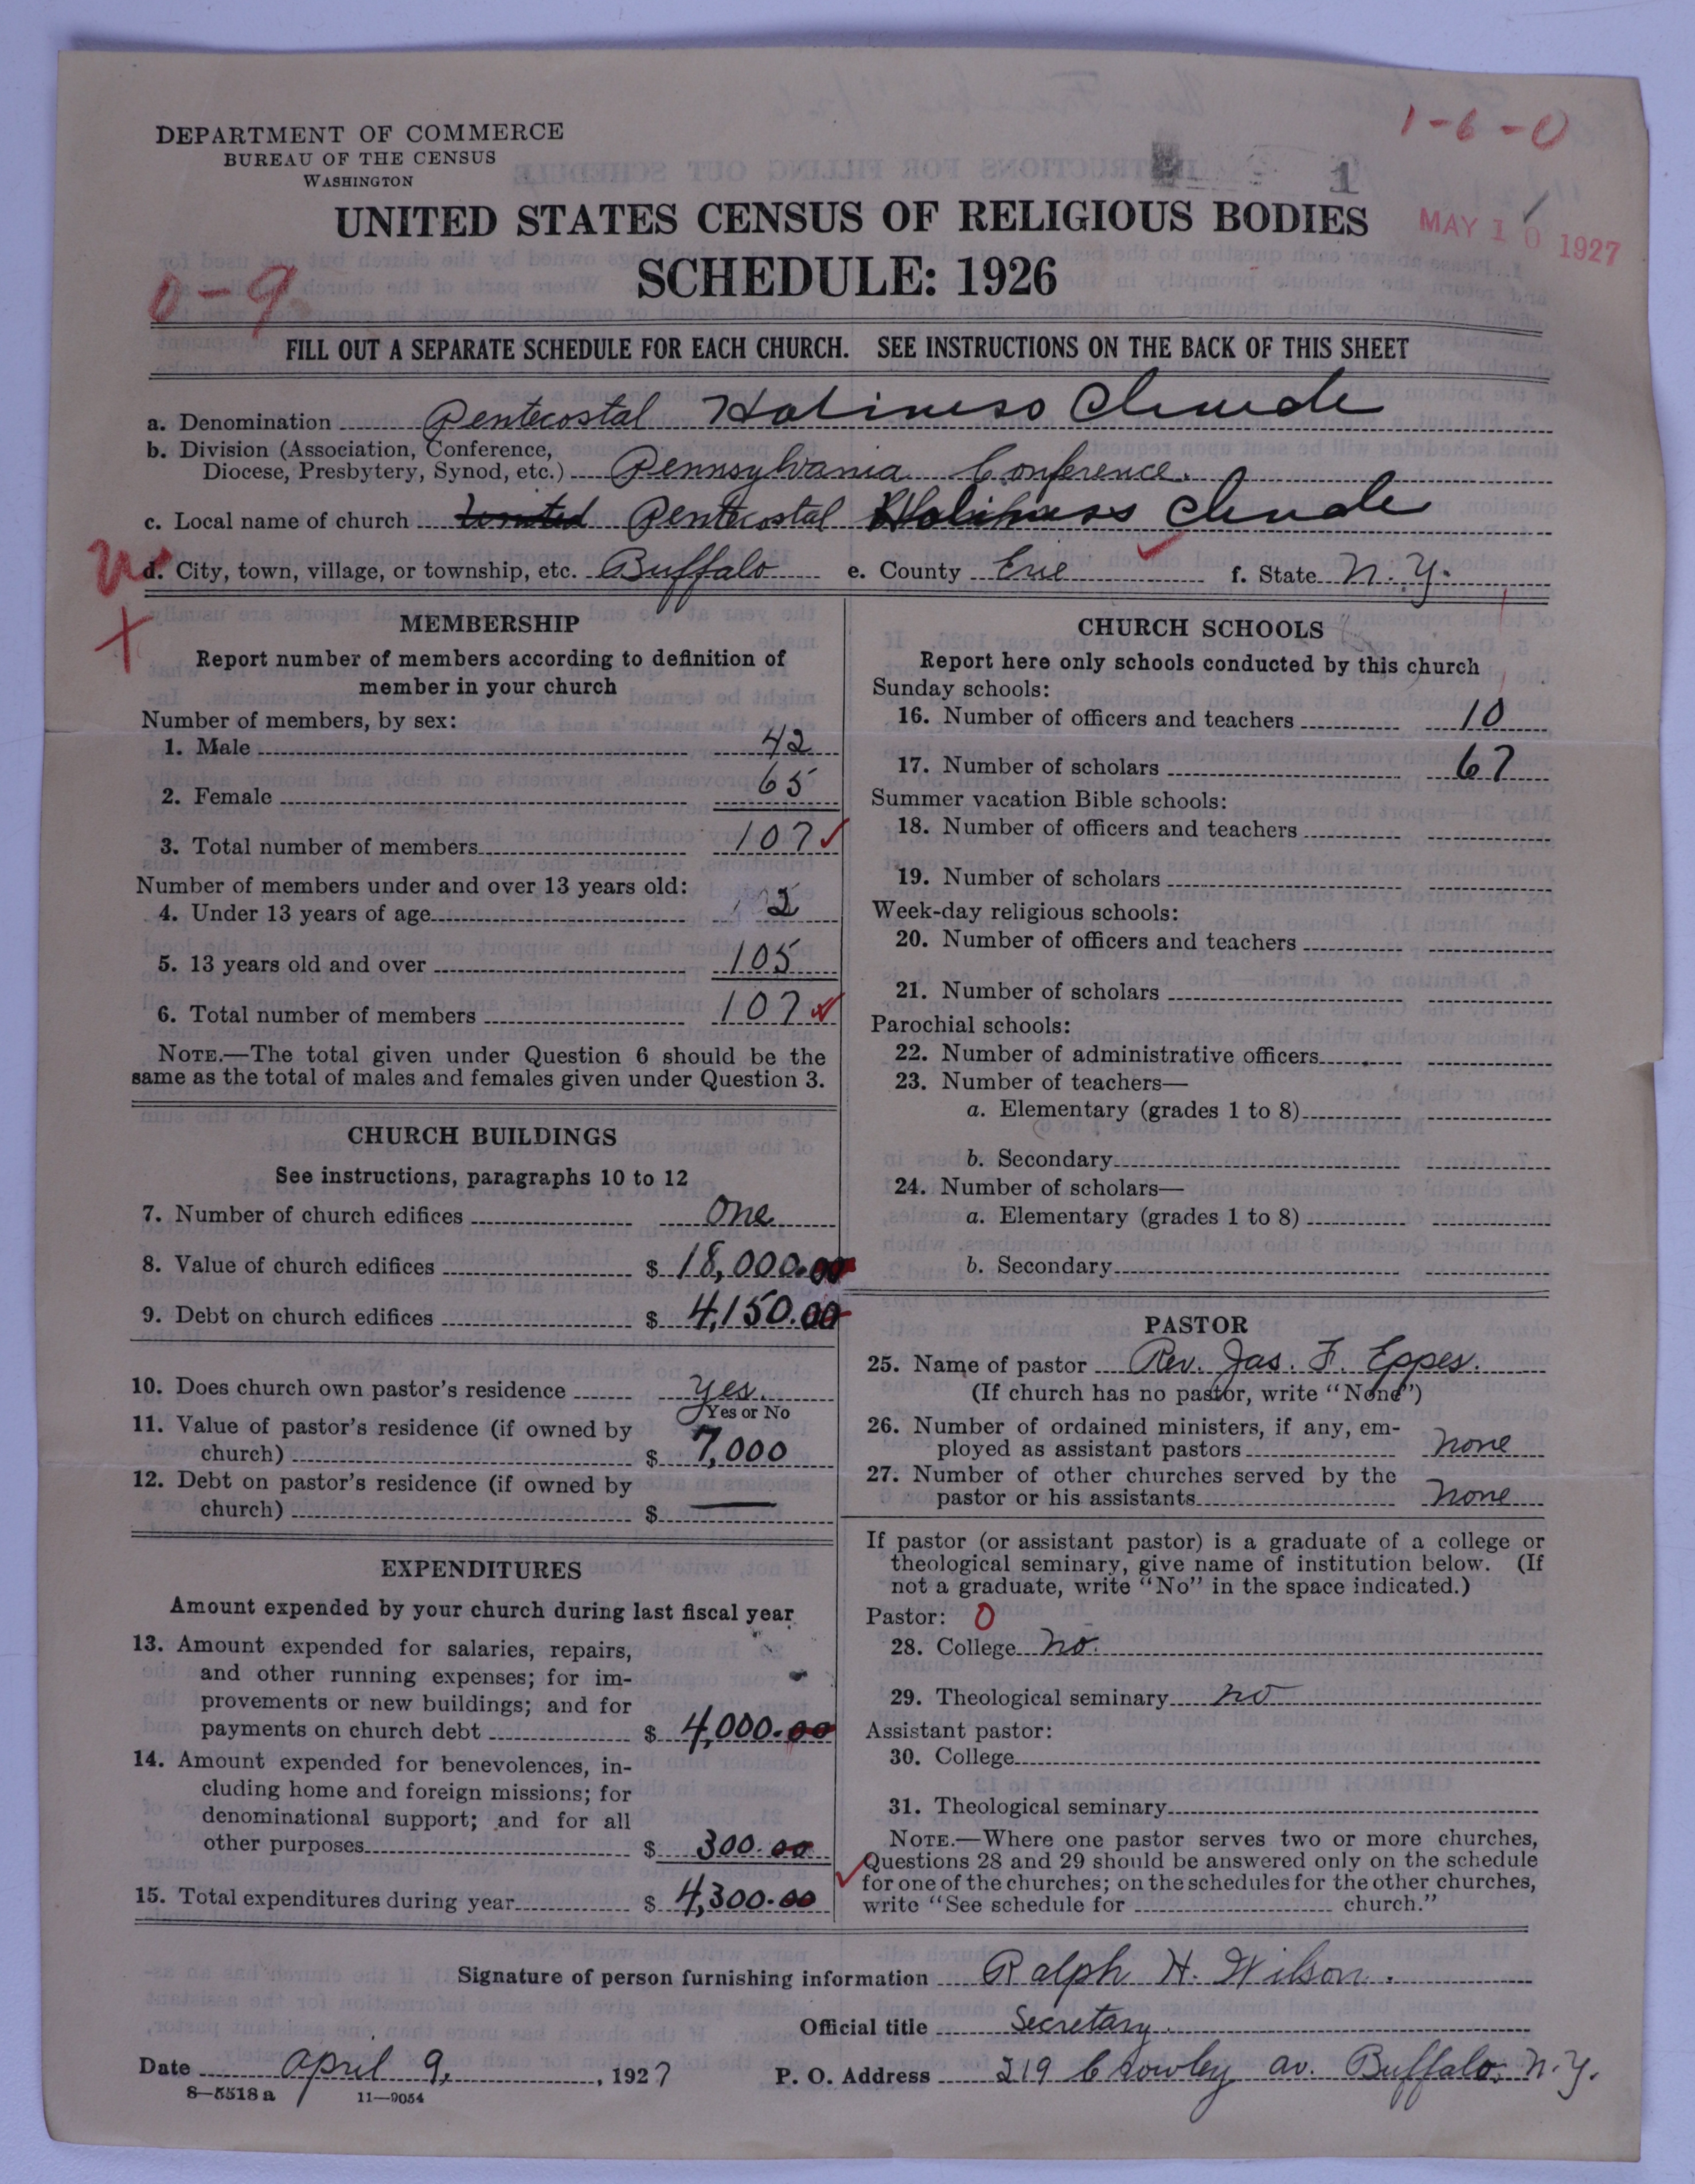 1-6-0
DEPARTMENT OF COMMERCE
BUREAU OF THE CENSUS
WASHINGTON
1
UNITED STATES CENSUS OF RELIGIOUS BODIES
MAY 10 1927
SCHEDULE: 1926
0-9
FILL OUT A SEPARATE SCHEDULE FOR EACH CHURCH. SEE INSTRUCTIONS ON THE BACK OF THIS SHEET
a. Denomination Pentecostal Holiness Church
b. Division (Association, Conference,
Diocese, Presbytery, Synod, etc.) Pennsylvania Conference.
c. Local name of church United Pentecostal Holiness Church
d. City, town, village, or township, etc. Buffalo e. County Erie f. State N. Y.
MEMBERSHIP
Report number of members according to definition of
member in your church
Number of members, by sex:
1. Male 42
2. Female 65
3. Total number of members 107
Number of members under and over 13 years old:
4. Under 13 years of age 2
5. 13 years old and over 105
6. Total number of members 107
NOTE.—The total given under Question 6 should be the
same as the total of males and females given under Question 3.
CHURCH BUILDINGS
See instructions, paragraphs 10 to 12
7. Number of church edifices One
8. Value of church edifices $ 18,000.00
9. Debt on church edifices $ 4,150.00
10. Does church own pastor's residence Yes.
Yes or No
11. Value of pastor's residence (if owned by
church) $ 7,000
12. Debt on pastor's residence (if owned by
church) $ —
EXPENDITURES
Amount expended by your church during last fiscal year
13. Amount expended for salaries, repairs,
and other running expenses; for im-
provements or new buildings; and for
payments on church debt $ 4,000.00
14. Amount expended for benevolences, in-
cluding home and foreign missions; for
denominational support; and for all
other purposes $ 300.00
15. Total expenditures during year $ 4,300.00
CHURCH SCHOOLS
Report here only schools conducted by this church
Sunday schools:
16. Number of officers and teachers 10
17. Number of scholars 67
Summer vacation Bible schools:
18. Number of officers and teachers
19. Number of scholars
Week-day religious schools:
20. Number of officers and teachers
21. Number of scholars
Parochial schools:
22. Number of administrative officers
23. Number of teachers—
a. Elementary (grades 1 to 8)
b. Secondary
24. Number of scholars—
a. Elementary (grades 1 to 8)
b. Secondary
PASTOR
25. Name of pastor Rev. Jas. F. Eppes.
(If church has no pastor, write "None")
26. Number of ordained ministers, if any, em-
ployed as assistant pastors none
27. Number of other churches served by the
pastor or his assistants none
If pastor (or assistant pastor) is a graduate of a college or
theological seminary, give name of institution below. (If
not a graduate, write "No" in the space indicated.)
Pastor: 0
28. College no.
29. Theological seminary no
Assistant pastor:
30. College
31. Theological seminary
NOTE.—Where one pastor serves two or more churches,
Questions 28 and 29 should be answered only on the schedule
for one of the churches; on the schedules for the other churches,
write "See schedule for church."
Signature of person furnishing information Ralph H. Wilson.
Official title Secretary.
Date April 9, 1927 P. O. Address 219 Crowley av. Buffalo, N. Y.
8—5518 a 11—9054